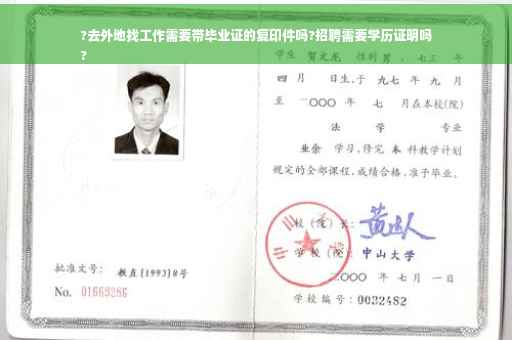 ?去外地找工作需要带毕业证的复印件吗?招聘需要学历证明吗
?
学生 贺文龙 性别 男 , 三 年
四 月 日生,于 九七 年 九 月
至 二〇〇〇 年 七 月在本校(院)
法 学 专业
业余 学习,修完 本 科教学计划
规定的全部课程,成绩合格,准予毕业。
校(院)长:
学校(院): 中山大学
二〇〇〇 年 七 月 一 日
学校编号:0032482
批准文号: 教直(1993)8号
No. 01669286